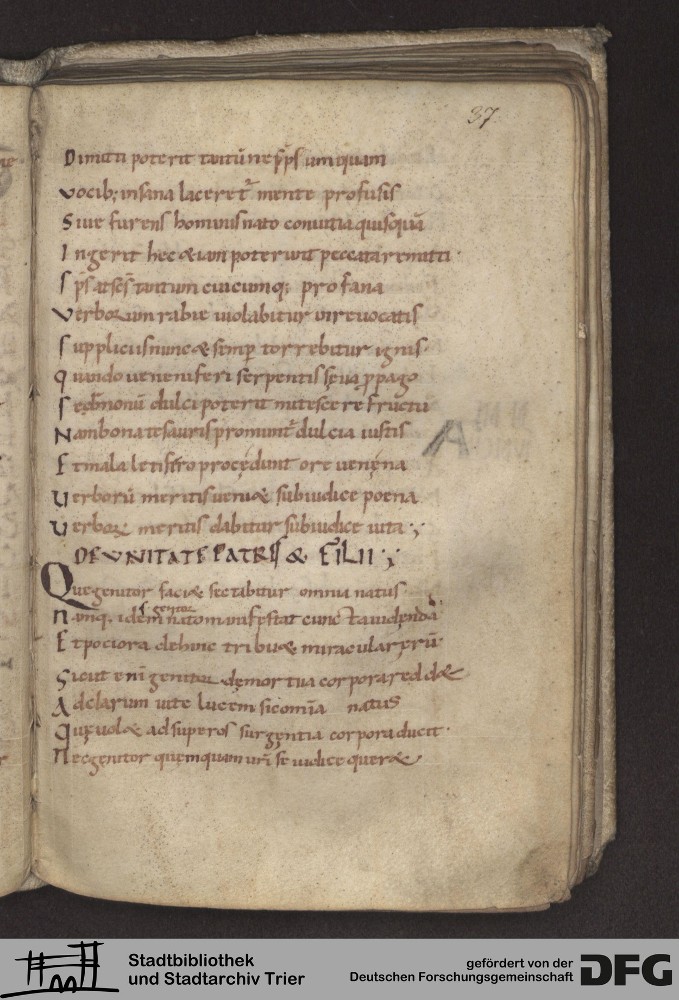 37
Dimitti poterit tantū ne sp̄s umquam
Vocib; insana laceret᷑ mente profusis
Sive furens hominis nato convitia quisquā
Ingerit hec & iam poterunt peccata remitti
Sp̄s at ses̄ tantum cuicumq; profana
Verborum rabie violabitur inrevocatis
Suppliciis nunc & semp̄ torrebitur ignis
Quando veneniferi serpentis seva ꝓpago
Sed nonū dulci poterit mitescere fructu
Nam bona tesauris promunt᷑ dulcia iustis
Et mala letifero procedunt ore venena
Verborū meritis veni& sub iudice poena
Verborꝝ meritis dabitur sub iudice vita
DE UNITATE PATRIS & FILII
Que genitor faci& sectabitur omnia natus
genitor
Et pociora dehinc tribu& miracula rerū
Sicut eni genitor demortua corpora redd&
Ad claram vite lucem sic omīa natus
Que vol& ad superos surgentia corpora ducit
Nec genitor quemquam urī se iudice quer&
Stadtbibliothek
und Stadtarchiv Trier
gefördert von der
Deutschen Forschungsgemeinschaft
DFG